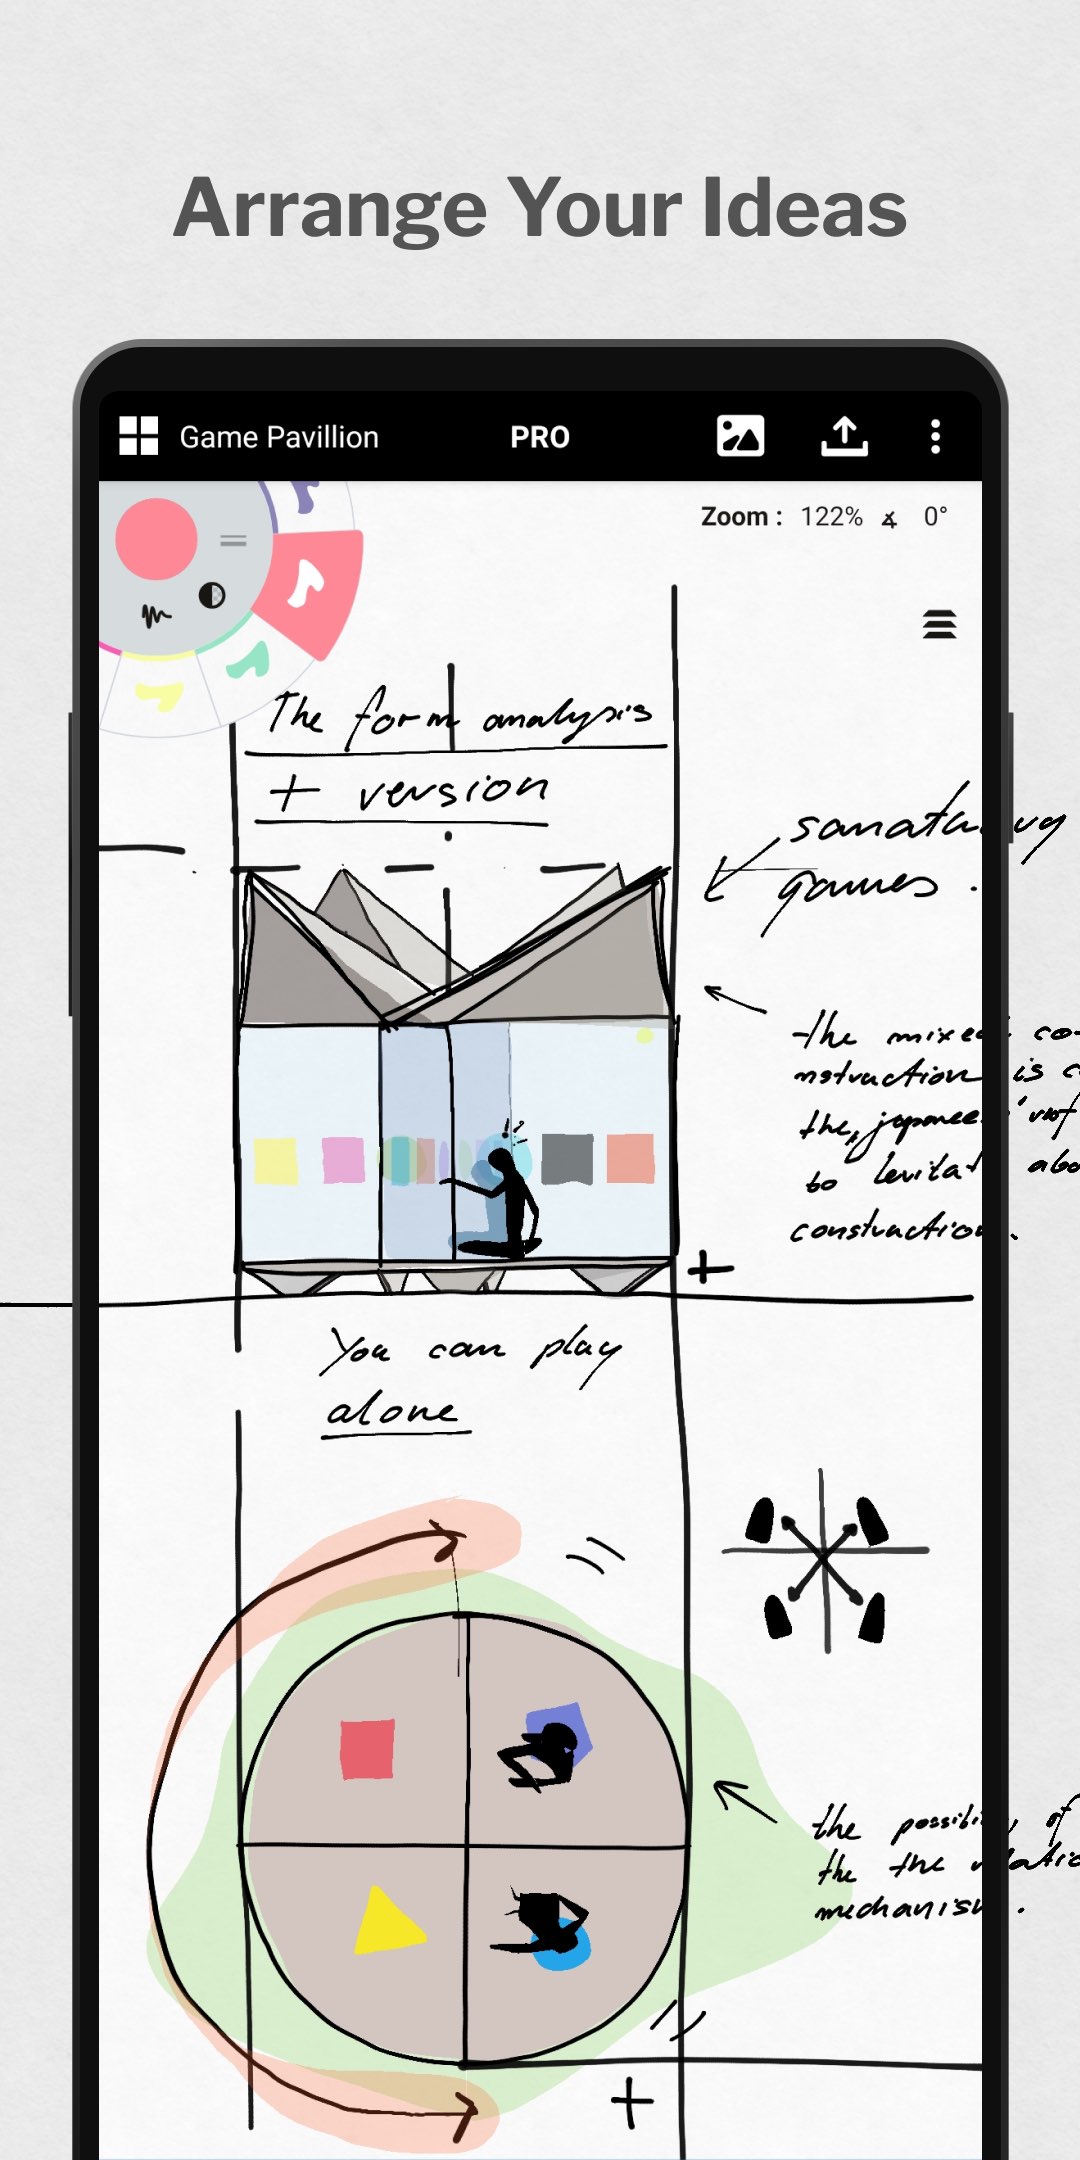 Arrange Your Ideas
Game Pavillion
PRO
Zoom : 122% 0°
The form analysis
+ version
games.
the mixed co-
nstruction is
the, japanese
to levitat
construction.
You can play
alone
the of
the the
mechanism.